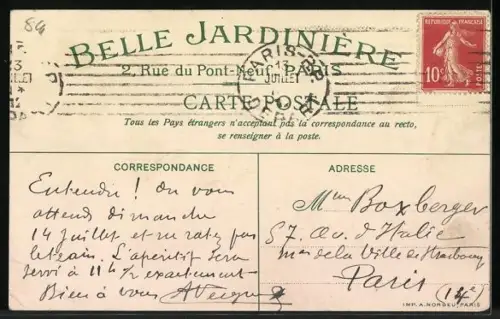 84
BELLE JARDINIÈRE
2, Rue du Pont-Neuf, PARIS
CARTE POSTALE
Tous les Pays étrangers n'acceptant pas la correspondance au recto,
se renseigner à la poste.
PARIS
13
JUILLET
RÉPUBLIQUE FRANÇAISE
10c
CORRESPONDANCE
Entendu ! On vous
attend dimanche
14 juillet et ne ratez pas
le train. L'apéritif sera
servi à 11h 1/2 exactement
Bien à vous
ADRESSE
Mme Boxberger
57. Av. d'Italie
mon de la Ville de Strasbourg
Paris (14e)
IMP. A. NORGEU, PARIS